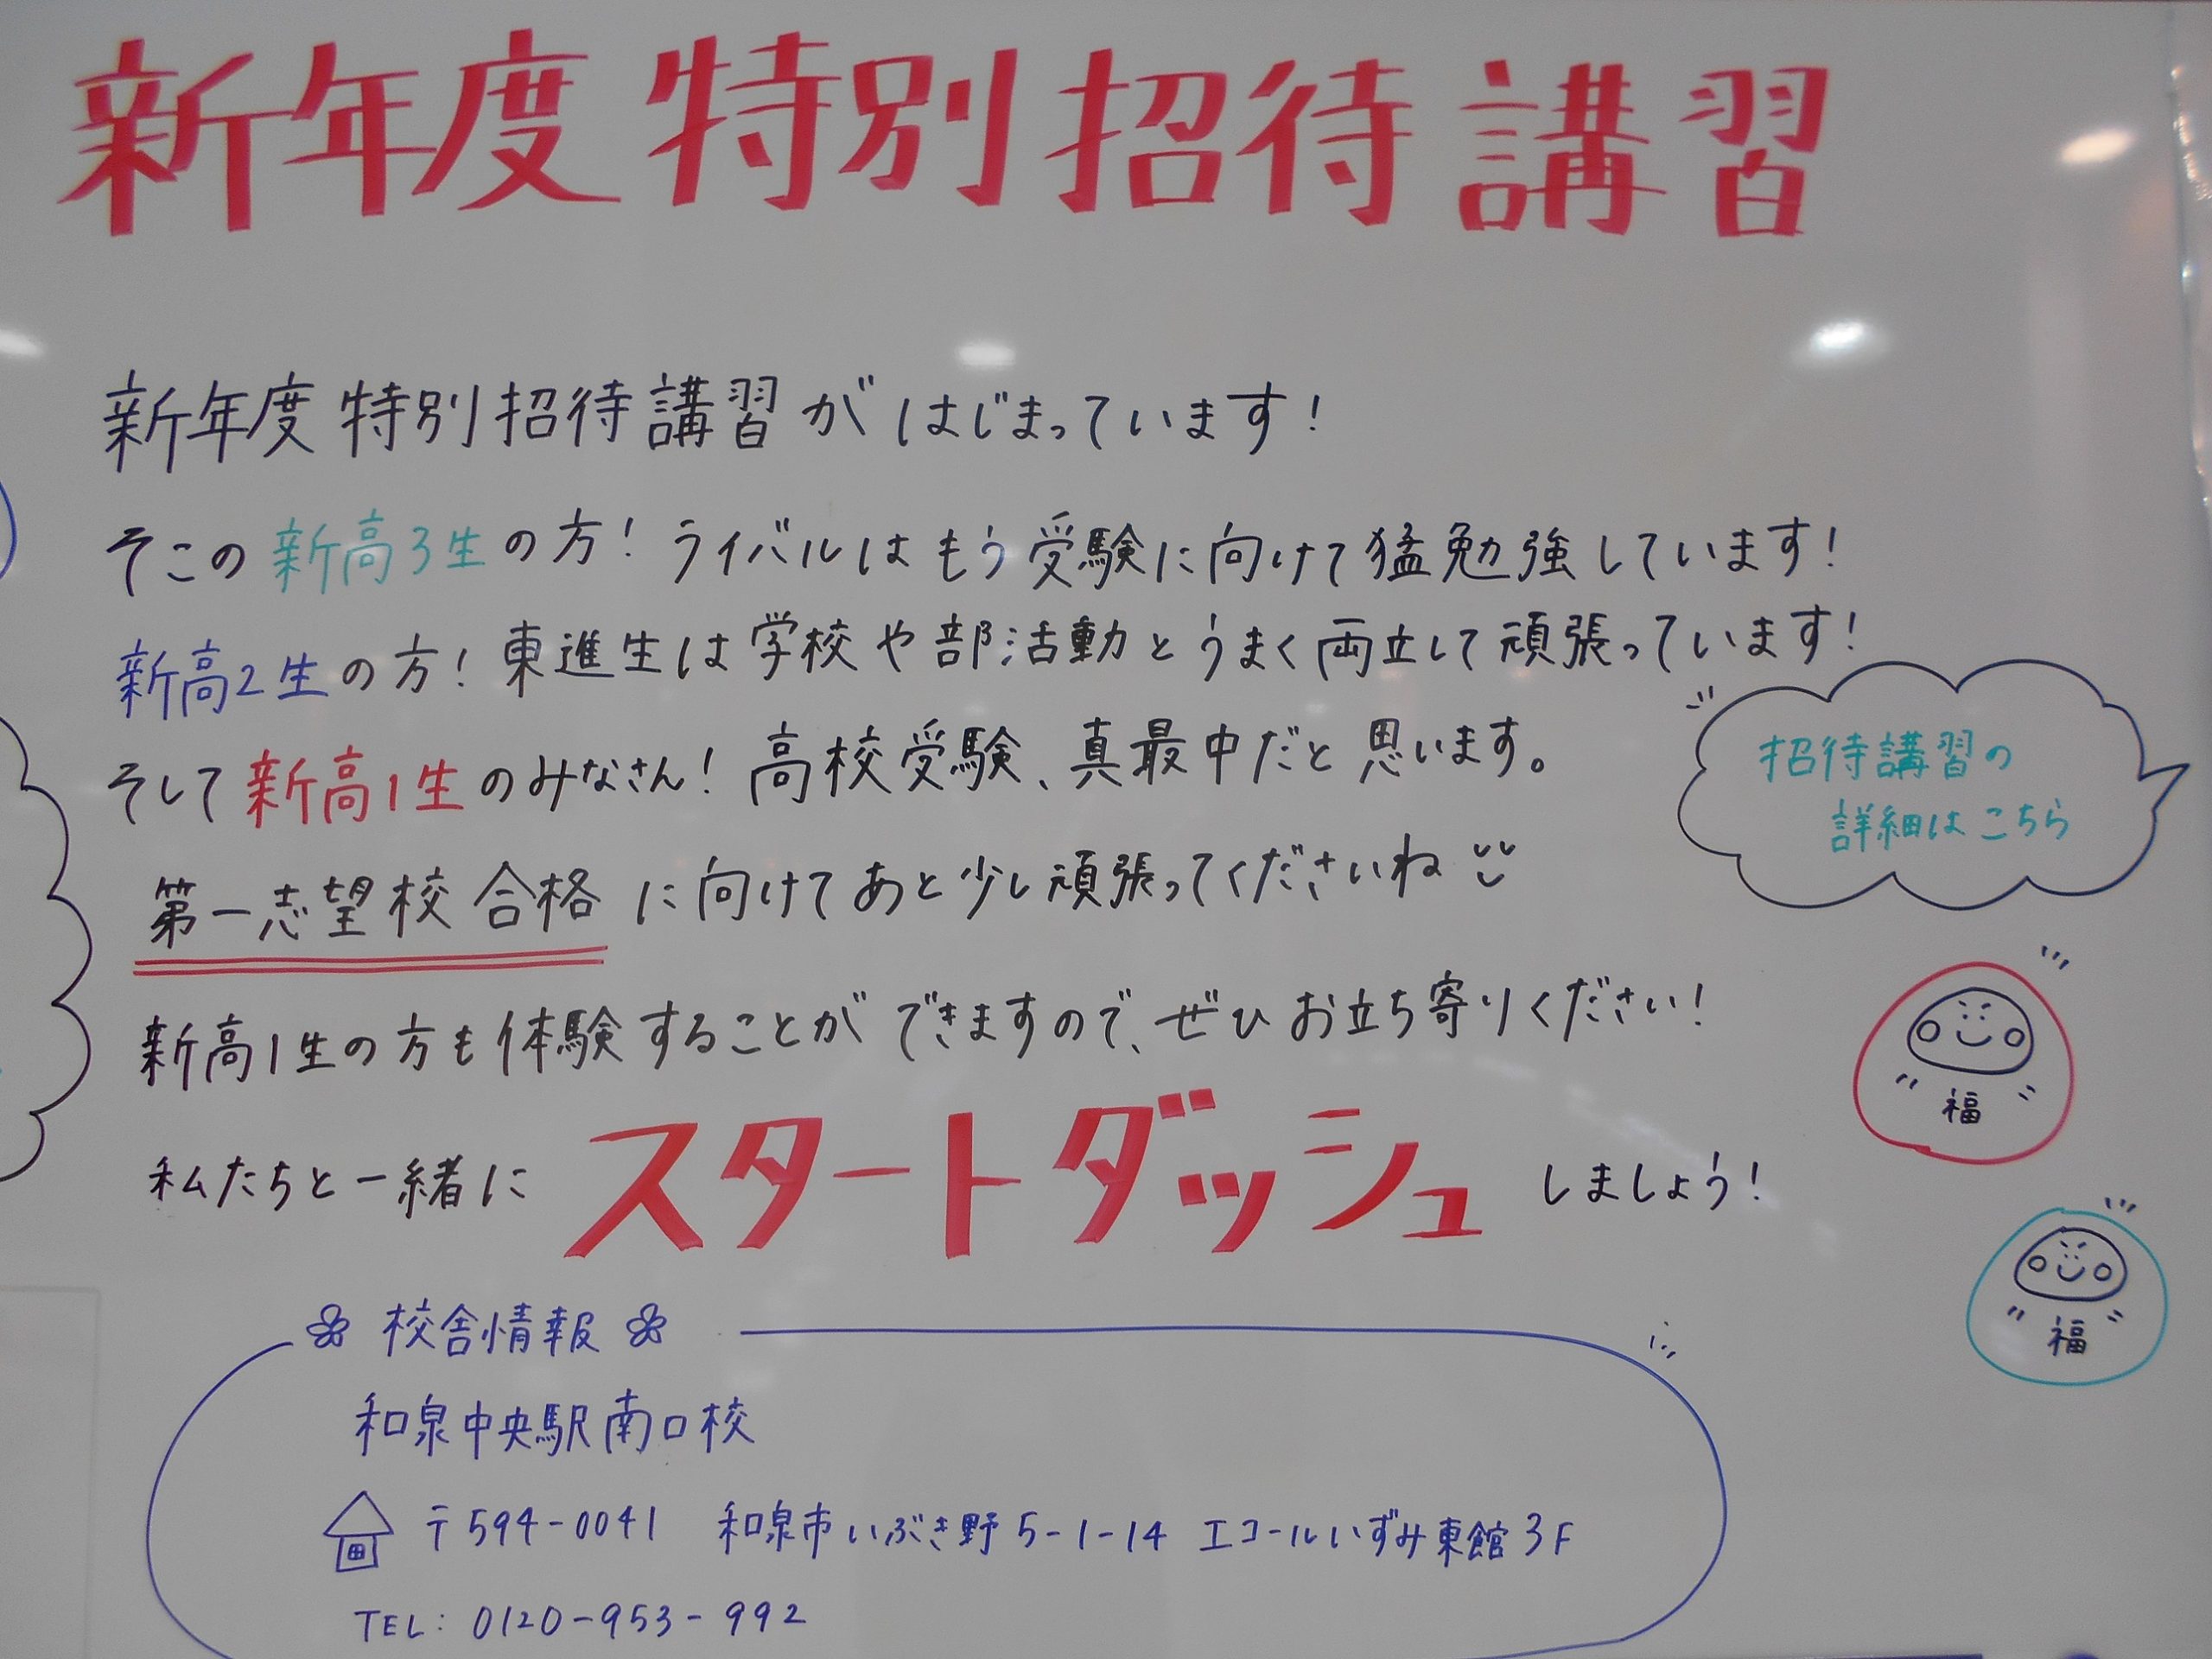 新年度 特別招待講習
新年度 特別招待講習 がはじまっています!
そこの新高3生の方! ライバルはもう受験に向けて猛勉強しています!
新高2生の方! 東進生は学校や部活動とうまく両立して頑張っています!
そして新高1生のみなさん! 高校受験、真最中だと思います。
第一志望校 合格 に向けてあと少し頑張ってくださいね
招待講習の
詳細はこちら
新高1生の方も体験することができますので、ぜひお立ち寄りください!
福
私たちと一緒に スタートダッシュ しましょう!
福
校舎情報
和泉中央駅南口校
〒594-0041 和泉市いぶき野5-1-14 エコールいずみ東館3F
TEL: 0120-953-992